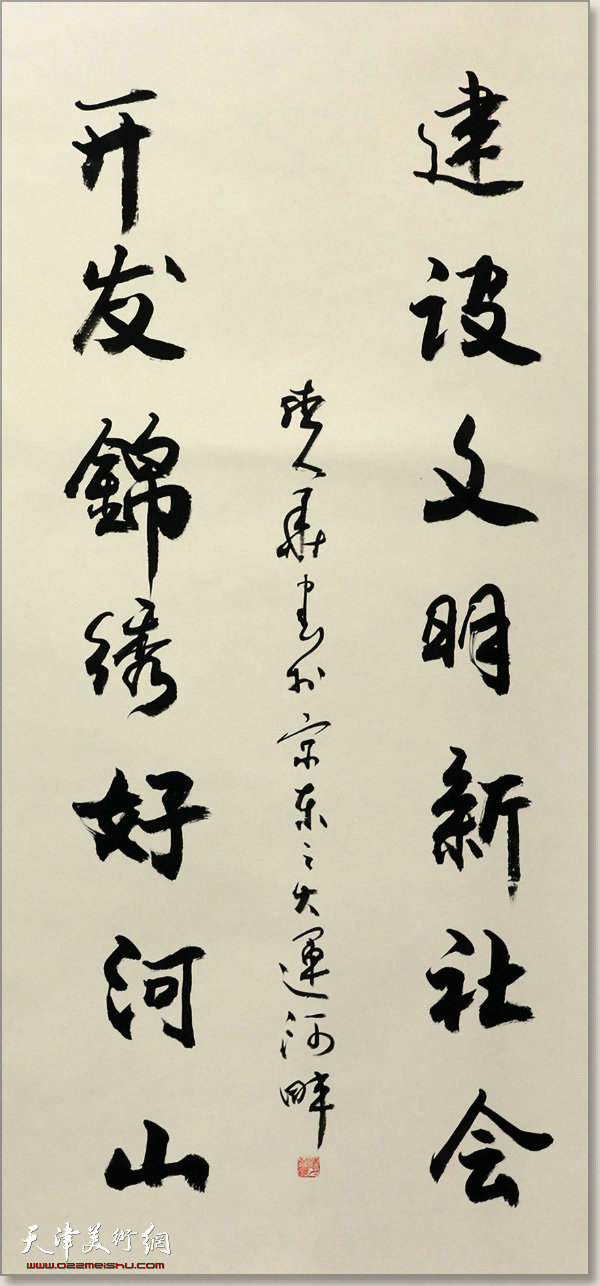 建设文明新社会
人华书於京东之大運河畔
开发錦绣好河山
天津美術網
www.022meishu.com